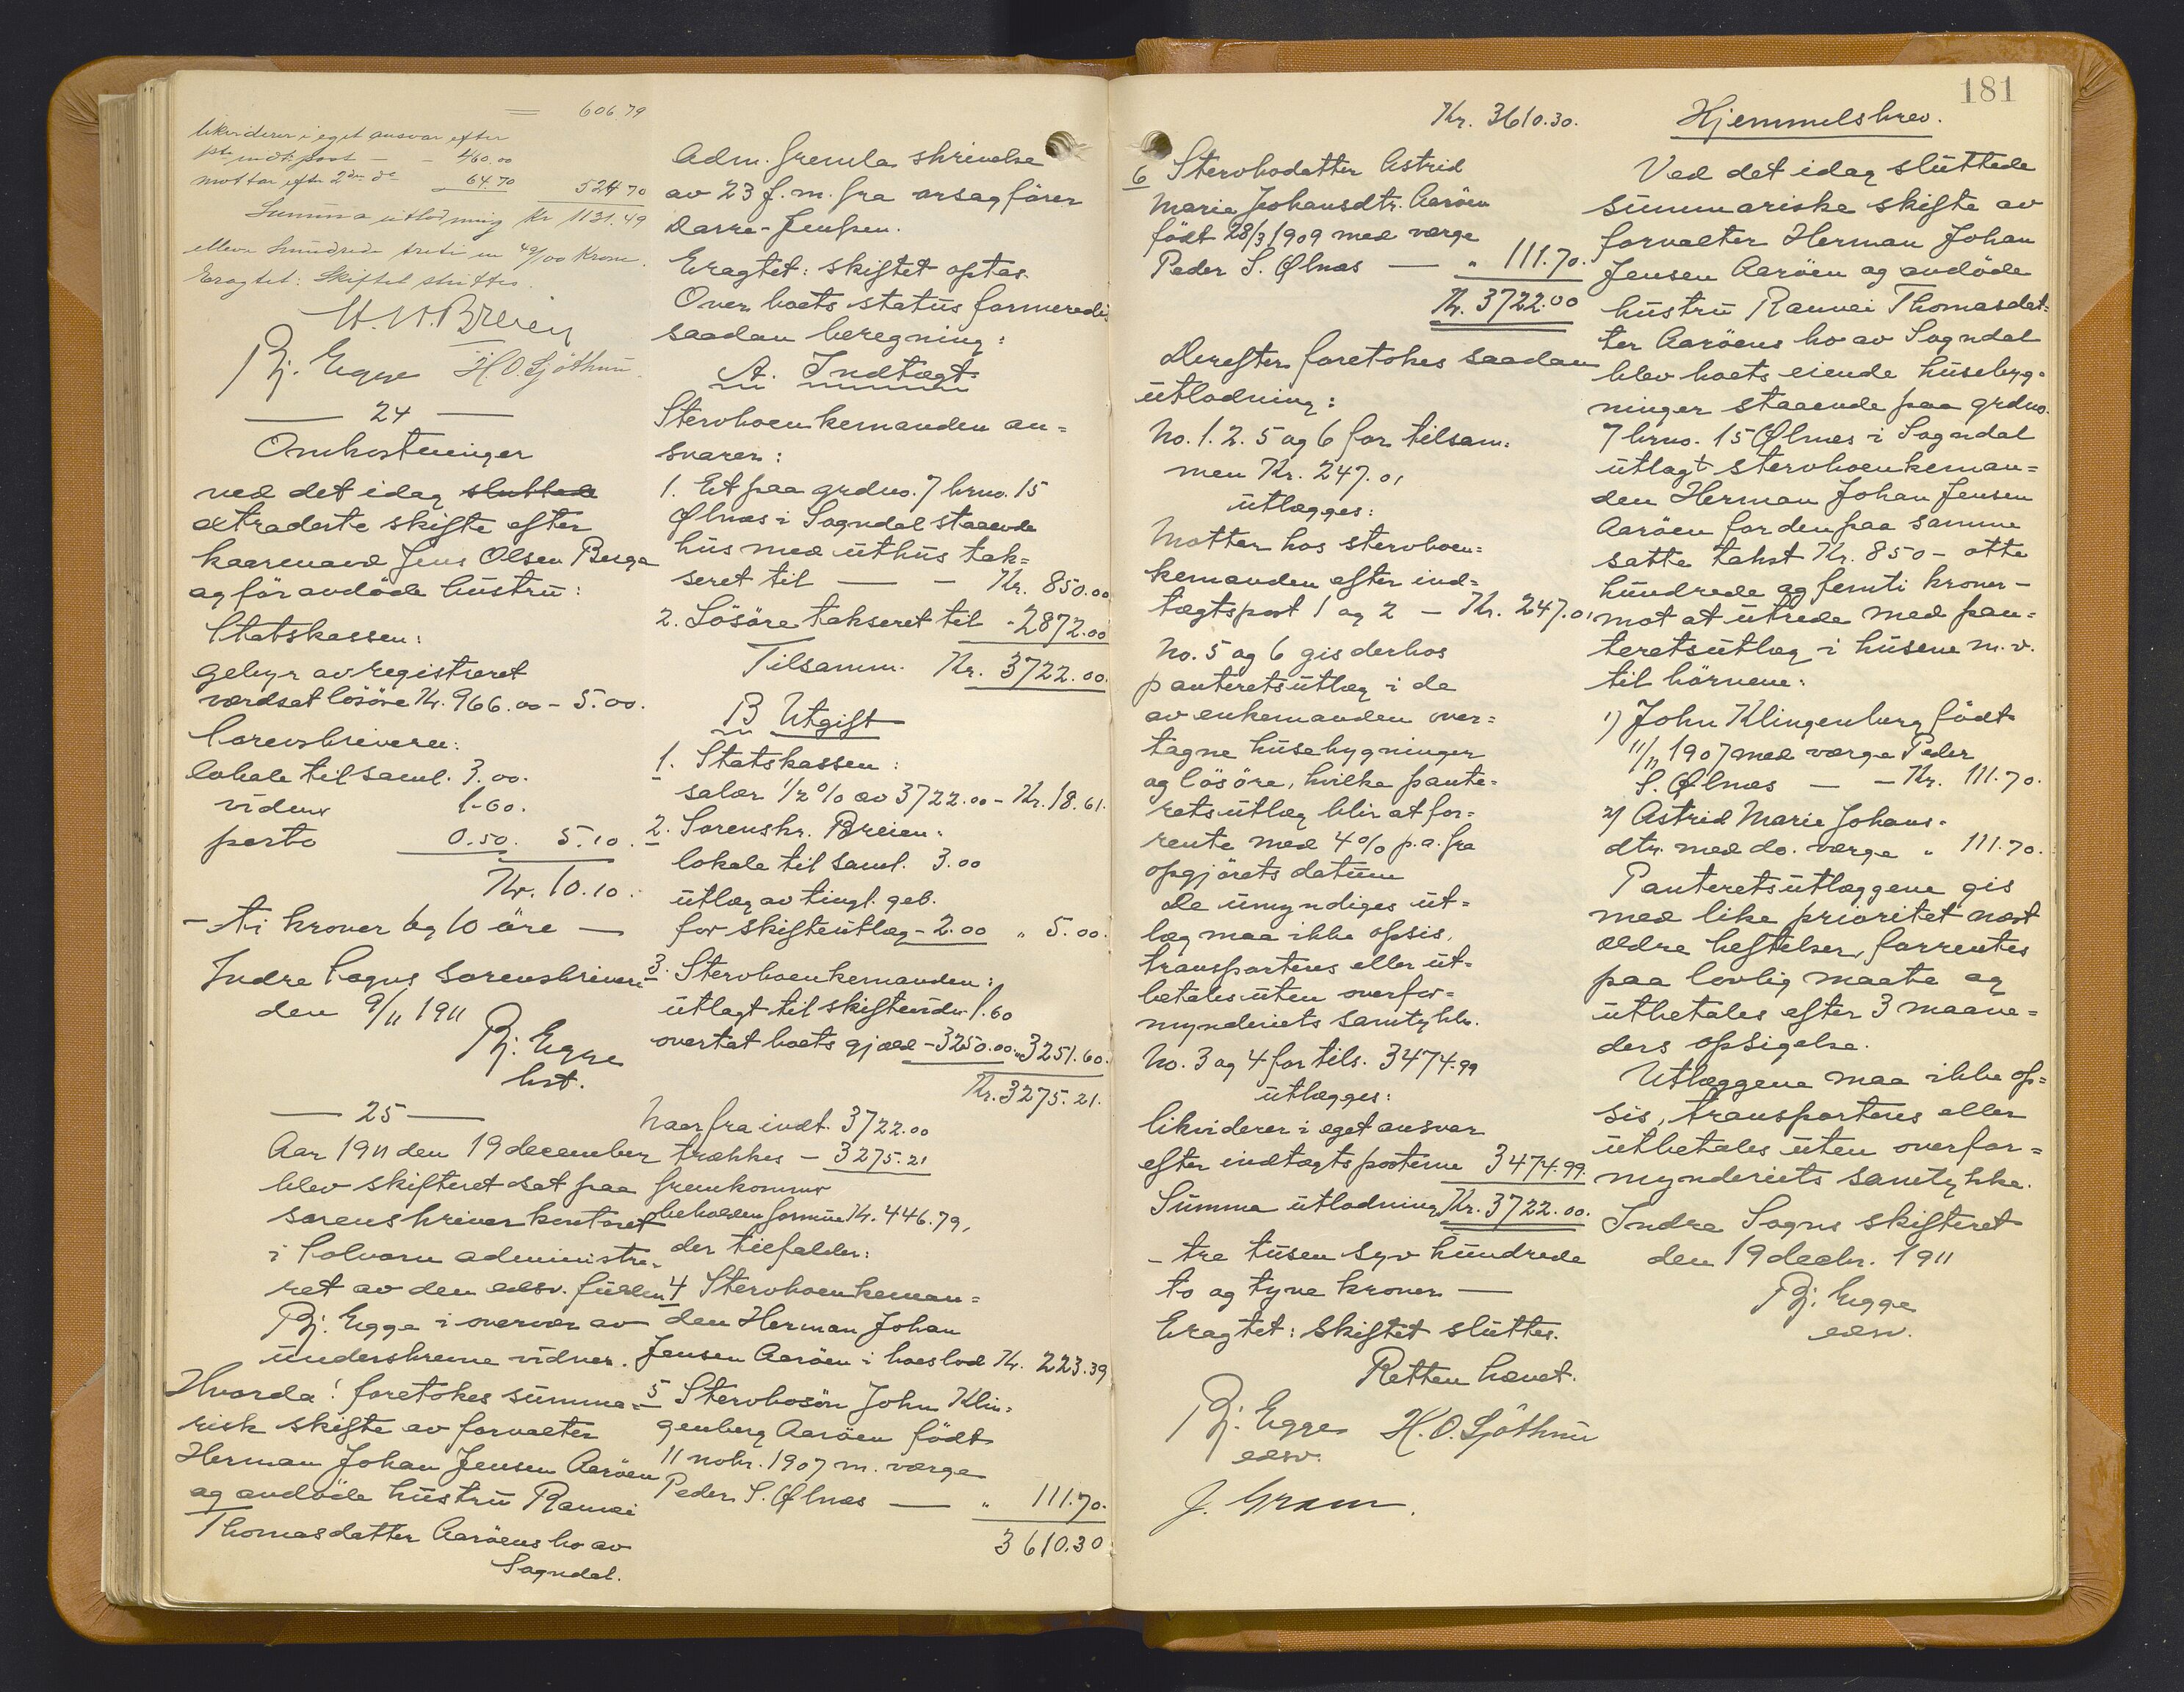 = 606.79
likviderer i eget ansvar efter
pt indt. post - - 460.00
mottar efter 2den do 64.70 524.70
Summa utlodning Kr 1131.49
elleve hundrede treti en 49/100 Krone.
Eragtet: Skiftet sluttes.
H. H. Breien
Bj. Egge H. O. Sjöthun
— 24 —
Omkostninger
ved det idag sluttede
extraderte skifte efter
kaarmand Jens Olsen Berge
og för avdöde hustru:
Statskassen:
gebyr av registreret
værdsat lösöre Kr. 966.00 - 5.00.
Sorenskriveren:
lokale til saml. 3.00.
vidner 1.60.
porto 0.50. 5.10.
Kr. 10.10.
- ti kroner og 10 öre -
Indre Sogns Sorenskriveri
den 9/11 1911
Bj. Egge
bst.
— 25 —
Aar 1911 den 19 december
blev skifteret sat paa
sorenskriverkontoret
i Solvorn administre-
ret av den edsv. fuldm.
Bj. Egge i overvær av
underskrevne vidner.
Hvorda: foretokes summa-
risk skifte av forvalter
Herman Johan Jensen Aaröen
og avdöde hustru Ranvei
Thomasdatter Aaröens bo av
Sogndal.
Adm. fremla skrivelse
av 23 f. m. fra orsagförer
Darre-Jenssen.
Eragtet: skiftet optas.
Over boets status formeredes
saadan beregning:
A. Indtægt
Stervboenkemanden an-
svarer:
1. Et paa grdno. 7 brno. 15
Ølnæs i Sogndal staaende
hus med uthus tak-
seret til — - Kr. 850.00
2. Lösöre takseret til - 2872.00
Tilsamm. Kr. 3722.00.
B Utgift
1. Statskassen:
salær 1/2 % av 3722.00 - Kr. 18.61.
2. Sorenskr. Breien:
lokale til saml. 3.00
utlæg av tingl. geb.
for skifteutlæg - 2.00 " 5.00.
3. Stervboenkemanden:
utlagt til skiftevidn. 1.60
overtat boets gjæld - 3250.00 " 3251.60.
Kr. 3275.21.
Naar fra indt. 3722.00
trækkes - 3275.21
fremkommer
beholden formue Kr. 446.79,
der tilfalder:
4 Stervboenkeman-
den Herman Johan
Jensen Aaröen i boeslod Kr. 223.39
5 Stervbosön John Klin-
genberg Aaröen födt
11 nobr. 1907 m. værge
Peder S. Ølnæs — " 111.70.
3610.30
Kr. 3610.30.
6 Stervbodatter Astrid
Marie Johansdtr. Aaröen
födt 28/3 1909 med værge
Peder S. Ølnæs — " 111.70.
Kr. 3722.00
Derefter foretokes saadan
utlodning:
No. 1. 2. 5 og 6 for tilsam-
men Kr. 247.01
utlægges:
Mottar hos stervboen-
kemanden efter ind-
tægtspost 1 og 2 - Kr. 247.01
No. 5 og 6 gis derhos
panteretsutlæg i de
av enkemanden over-
tagne husebygninger
og lösöre, hvilke pante-
retsutlæg blir at for-
rente med 4% p.a. fra
opgjörets datum
De umyndiges ut-
læg maa ikke opsis,
transporteres eller ut-
betales uten overfor-
mynderiets samtykke.
No. 3 og 4 for tils. 3474.99
utlægges:
likviderer i eget ansvar
efter indtægtsposterne 3474.99.
Summa utlodning Kr. 3722.00.
- tre tusen syv hundrede
to og tyve kroner —
Eragtet: Skiftet sluttes.
Retten hævet.
Bj. Egge H. O. Sjöthun
edsv.
J. Gram.
181
Hjemmelsbrev.
Ved det idag sluttede
summariske skifte av
forvalter Herman Johan
Jensen Aaröen og avdöde
hustru Ranvei Thomasdat-
ter Aaröens bo av Sogndal
blev boets eiende husebyg-
ninger staaende paa grdno.
7 brno. 15 Ølnæs i Sogndal
utlagt stervboenkeman-
den Herman Johan Jensen
Aaröen for den paa samme
satte takst Kr. 850 - otte
hundrede og femti kroner -
mot at utrede med pan-
teretsutlæg i husene m. v.
til börnene:
1) John Klingenberg födt
11/11 1907 med værge Peder
S. Ølnæs — - Kr. 111.70.
2) Astrid Marie Johans-
dtr. med do. værge " 111.70.
Panteretsutlæggene gis
med like prioritet næst
ældre heftelser, forrentes
paa lovlig maate og
utbetales efter 3 maane-
ders opsigelse.
Utlæggene maa ikke op-
sis, transporteres eller
utbetales uten overfor-
mynderiets samtykke.
Indre Sogns skifteret
den 19 decbr. 1911
Bj. Egge
edsv.